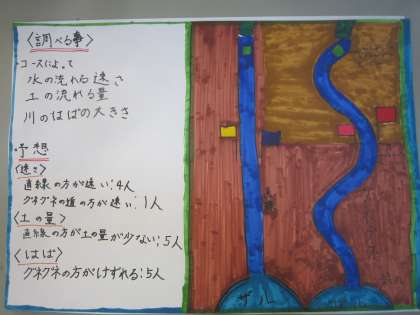 〈調べる事〉
・コースによって
水の流れる速さ
土の流れる量
川のはばの大きさ
・予想
〈速さ〉
直線の方が速い:4人
クネクネの道の方が速い:1人
〈土の量〉
直線の方が土の量が少ない:5人
〈はば〉
クネグネの方がけずれる:5人
ザル